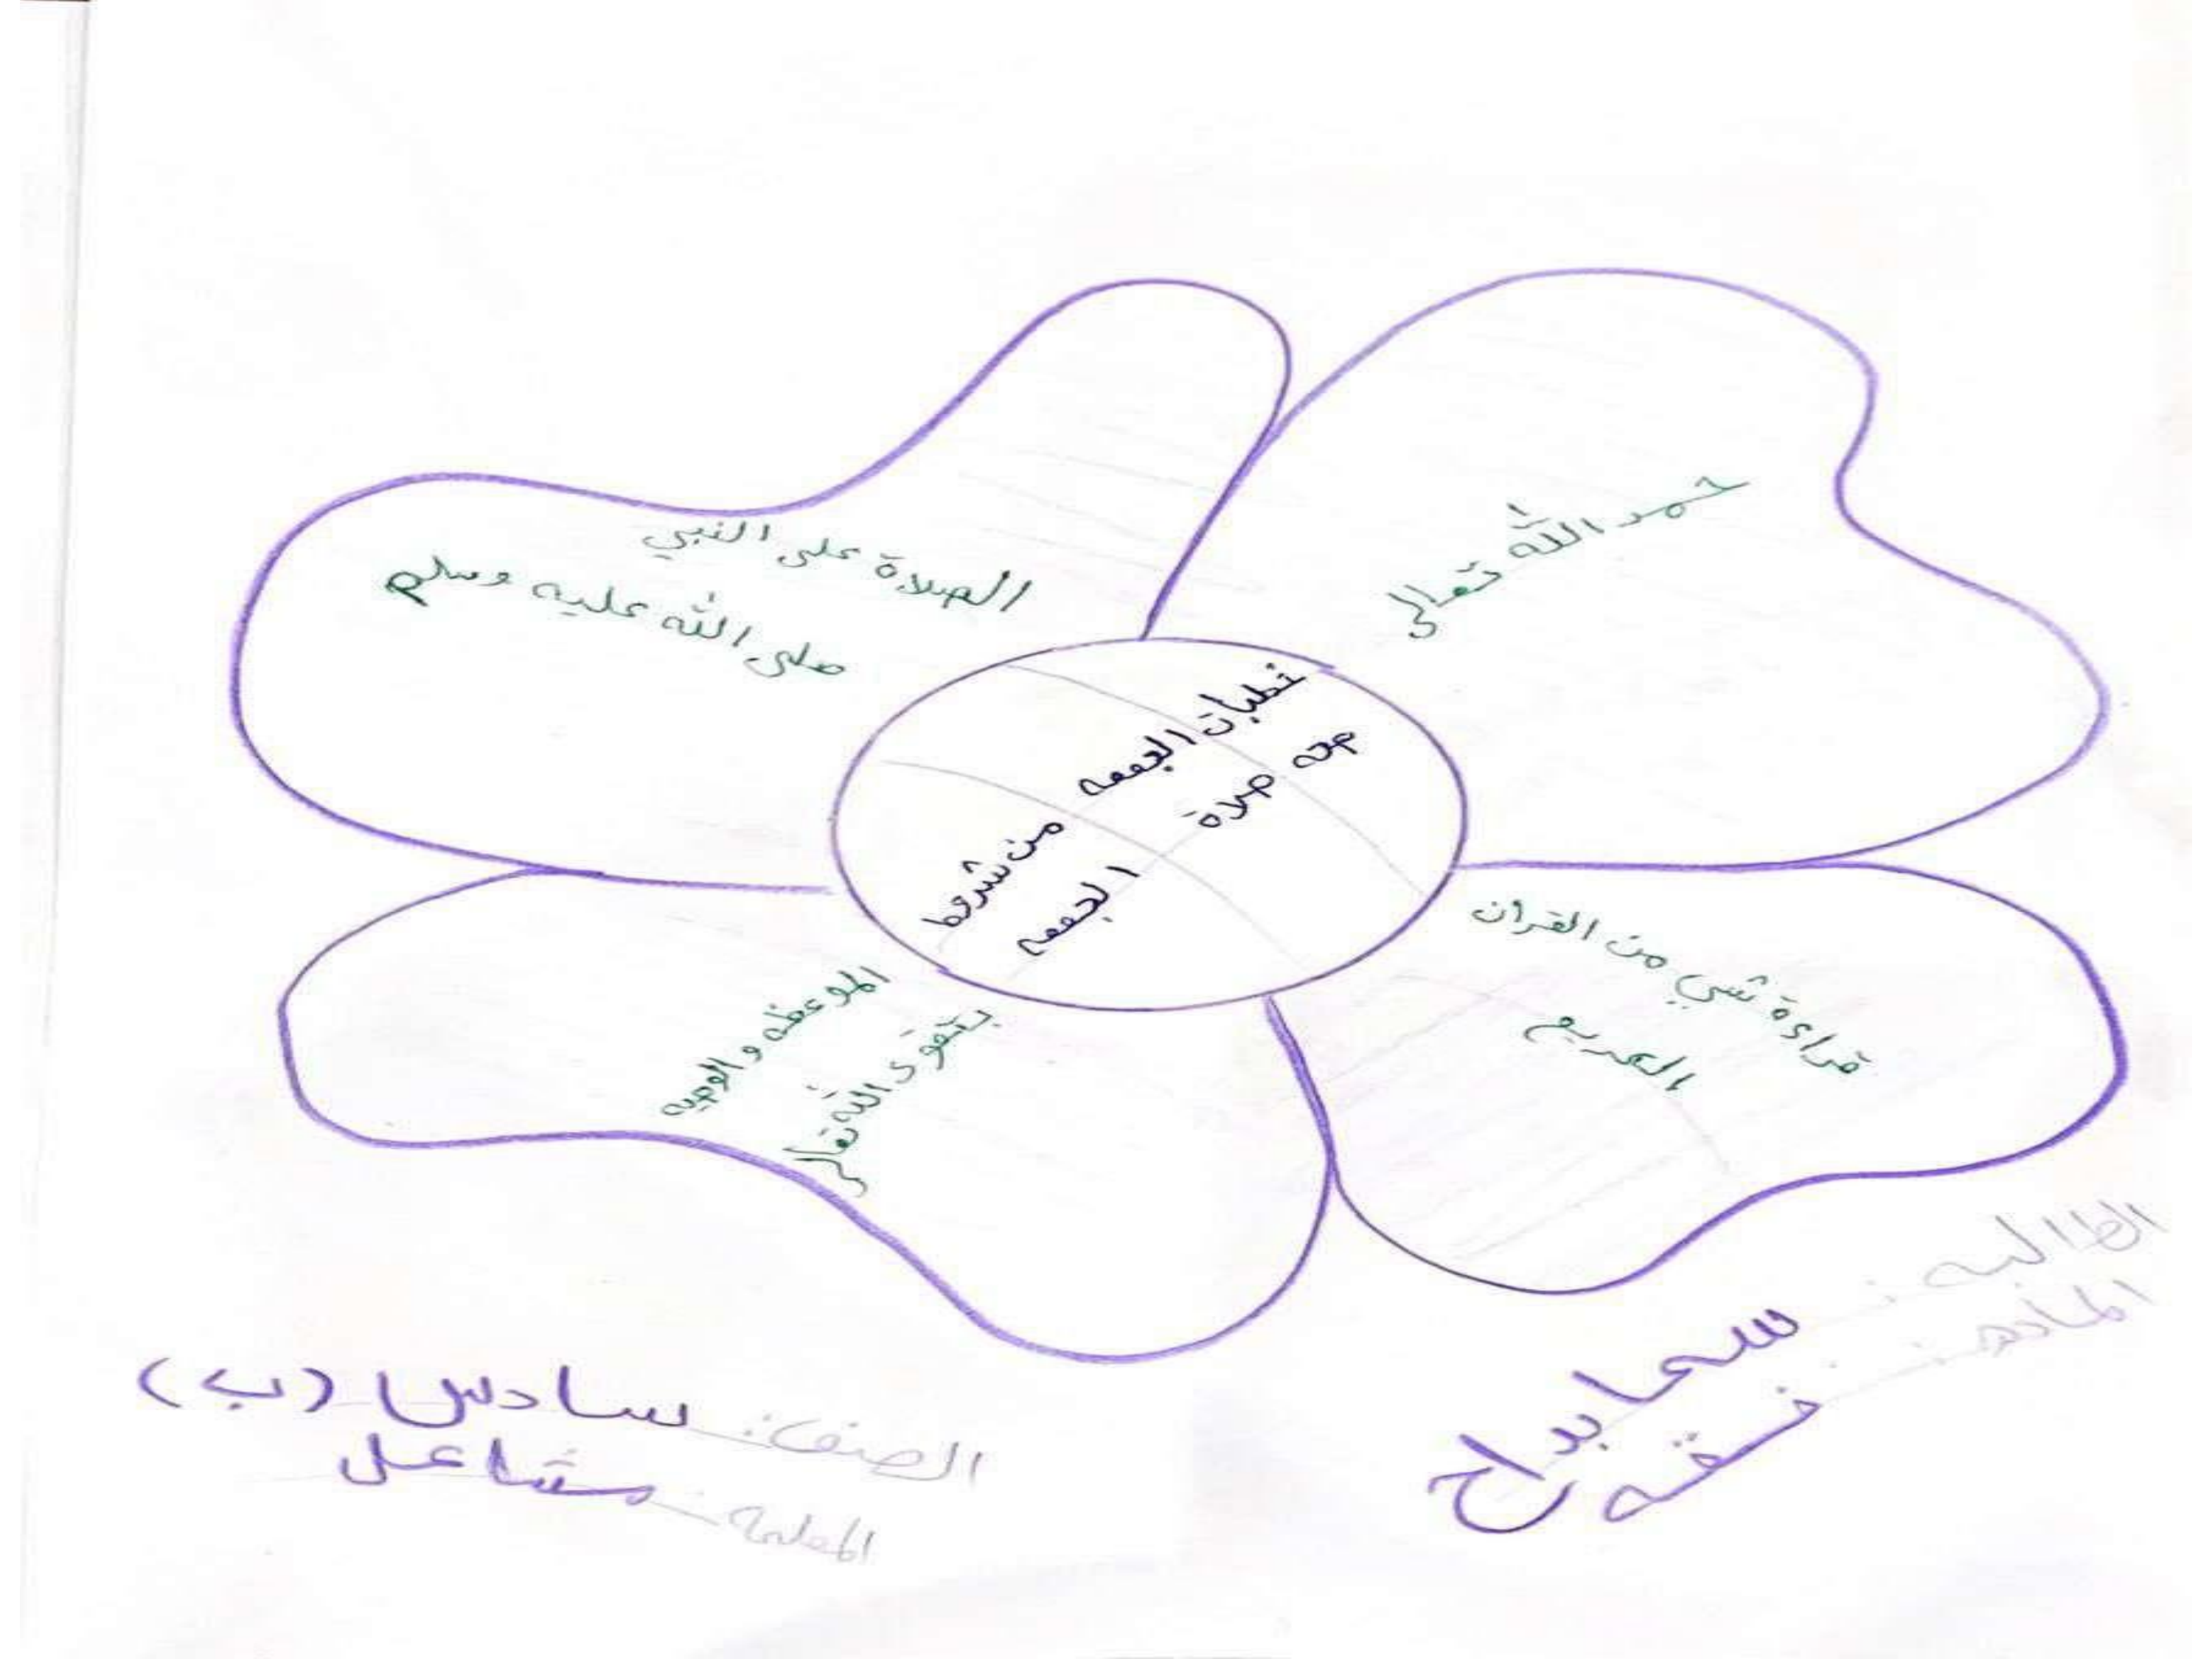 خطبات الجمعه من شروط
صحه صلاة الجمعه
حمد الله تعالى
الصلاة على النبي
صلى الله عليه وسلم
قراءة شي من القران
الكريم
الموعظه والوصيه
بتقوى الله تعالى
الطالبه: سما بداح
الماده: فقه
الصف: سادس (ب)
المعلمه: مشاعل